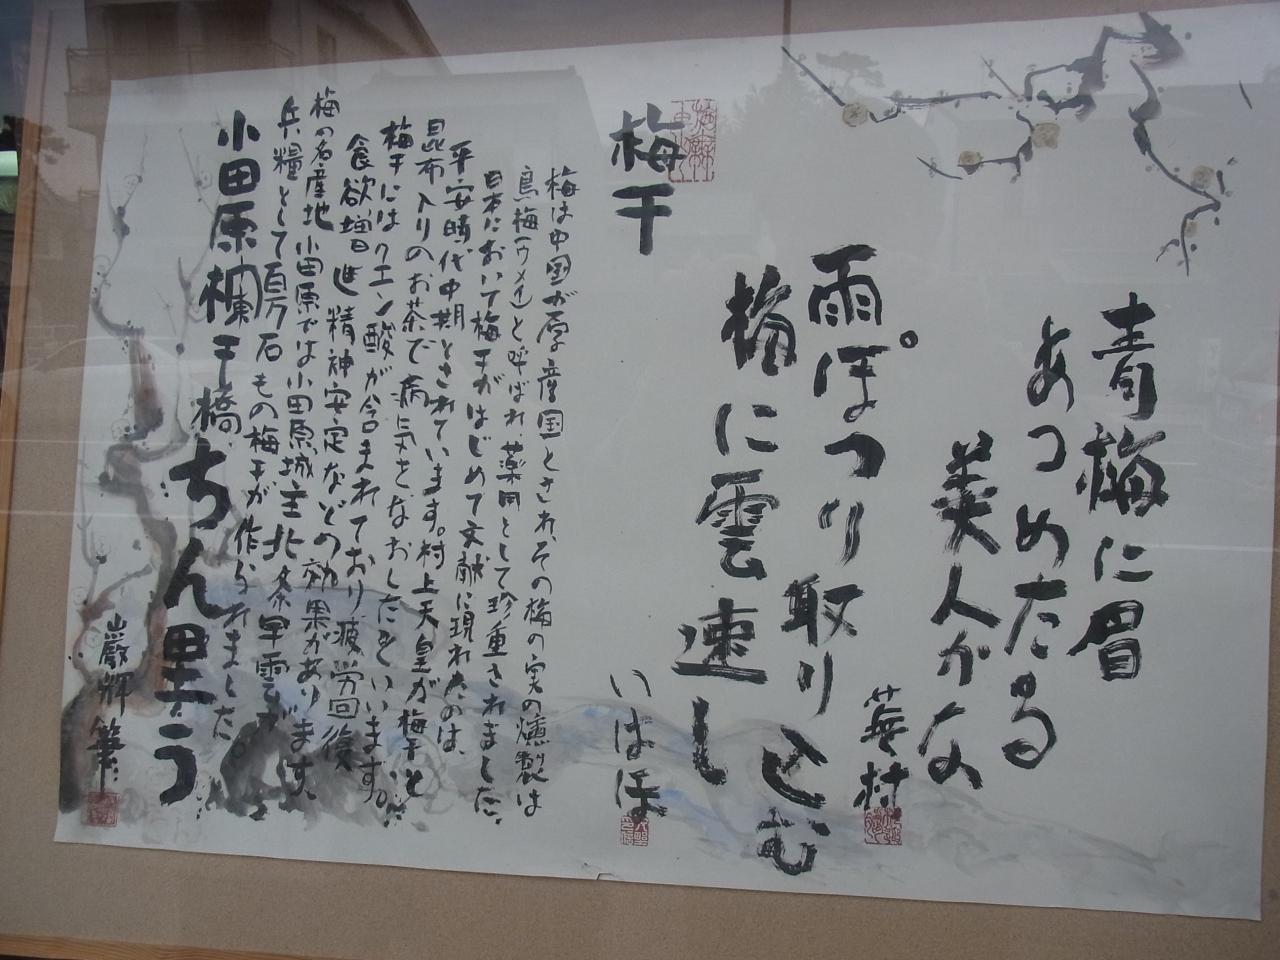 青梅に眉
あつめたる
美人かな
蕪村
雨ぽつり取りこむ
梅に雲速し
いはほ
梅干
梅は中国が原産国とされ、その梅の実の燻製は
烏梅(ウメイ)と呼ばれ、薬用として珍重されました。
日本において梅干がはじめて文献に現れたのは、
平安時代中期とされています。村上天皇が梅干と
昆布入りのお茶で病気をなおしたといいます。
梅干にはクエン酸が含まれており疲労回復
食欲増進精神安定などの効果があります。
梅の名産地小田原では小田原城主北条早雲が
兵糧として百万石もの梅干が作られました。
小田原欄干橋ちん里う
巌輝筆